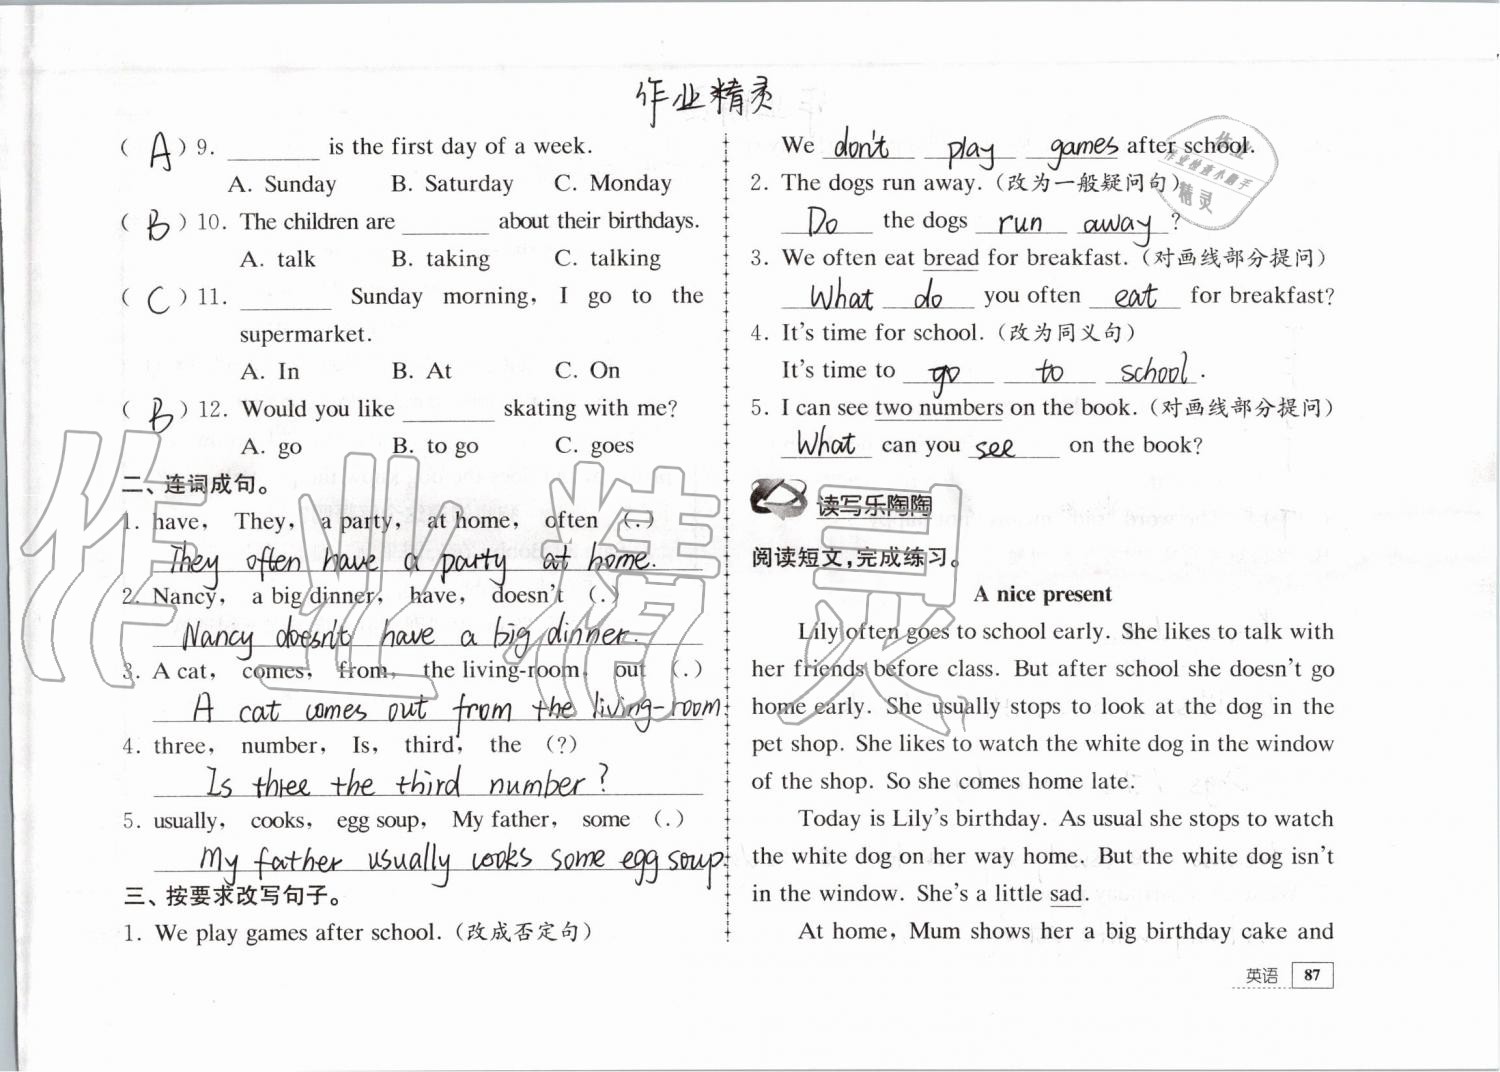 作业精灵
( A ) 9. ________ is the first day of a week.
A. Sunday B. Saturday C. Monday
( B ) 10. The children are ________ about their birthdays.
A. talk B. taking C. talking
( C ) 11. ________ Sunday morning, I go to the
supermarket.
A. In B. At C. On
( B ) 12. Would you like ________ skating with me?
A. go B. to go C. goes
二、连词成句。
1. have, They, a party, at home, often (.)
They often have a party at home.
2. Nancy, a big dinner, have, doesn't (.)
Nancy doesn't have a big dinner.
3. A cat, comes, from, the living-room, out (.)
A cat comes out from the living-room.
4. three, number, Is, third, the (?)
Is three the third number?
5. usually, cooks, egg soup, My father, some (.)
My father usually cooks some egg soup.
三、按要求改写句子。
1. We play games after school. (改成否定句)
We don't play games after school.
2. The dogs run away. (改为一般疑问句)
Do the dogs run away ?
3. We often eat bread for breakfast. (对画线部分提问)
What do you often eat for breakfast?
4. It's time for school. (改为同义句)
It's time to go to school.
5. I can see two numbers on the book. (对画线部分提问)
What can you see on the book?
读写乐陶陶
阅读短文,完成练习。
A nice present
Lily often goes to school early. She likes to talk with
her friends before class. But after school she doesn't go
home early. She usually stops to look at the dog in the
pet shop. She likes to watch the white dog in the window
of the shop. So she comes home late.
Today is Lily's birthday. As usual she stops to watch
the white dog on her way home. But the white dog isn't
in the window. She's a little sad.
At home, Mum shows her a big birthday cake and
英语 87
作业精灵
作业
作业检查小助手
精灵